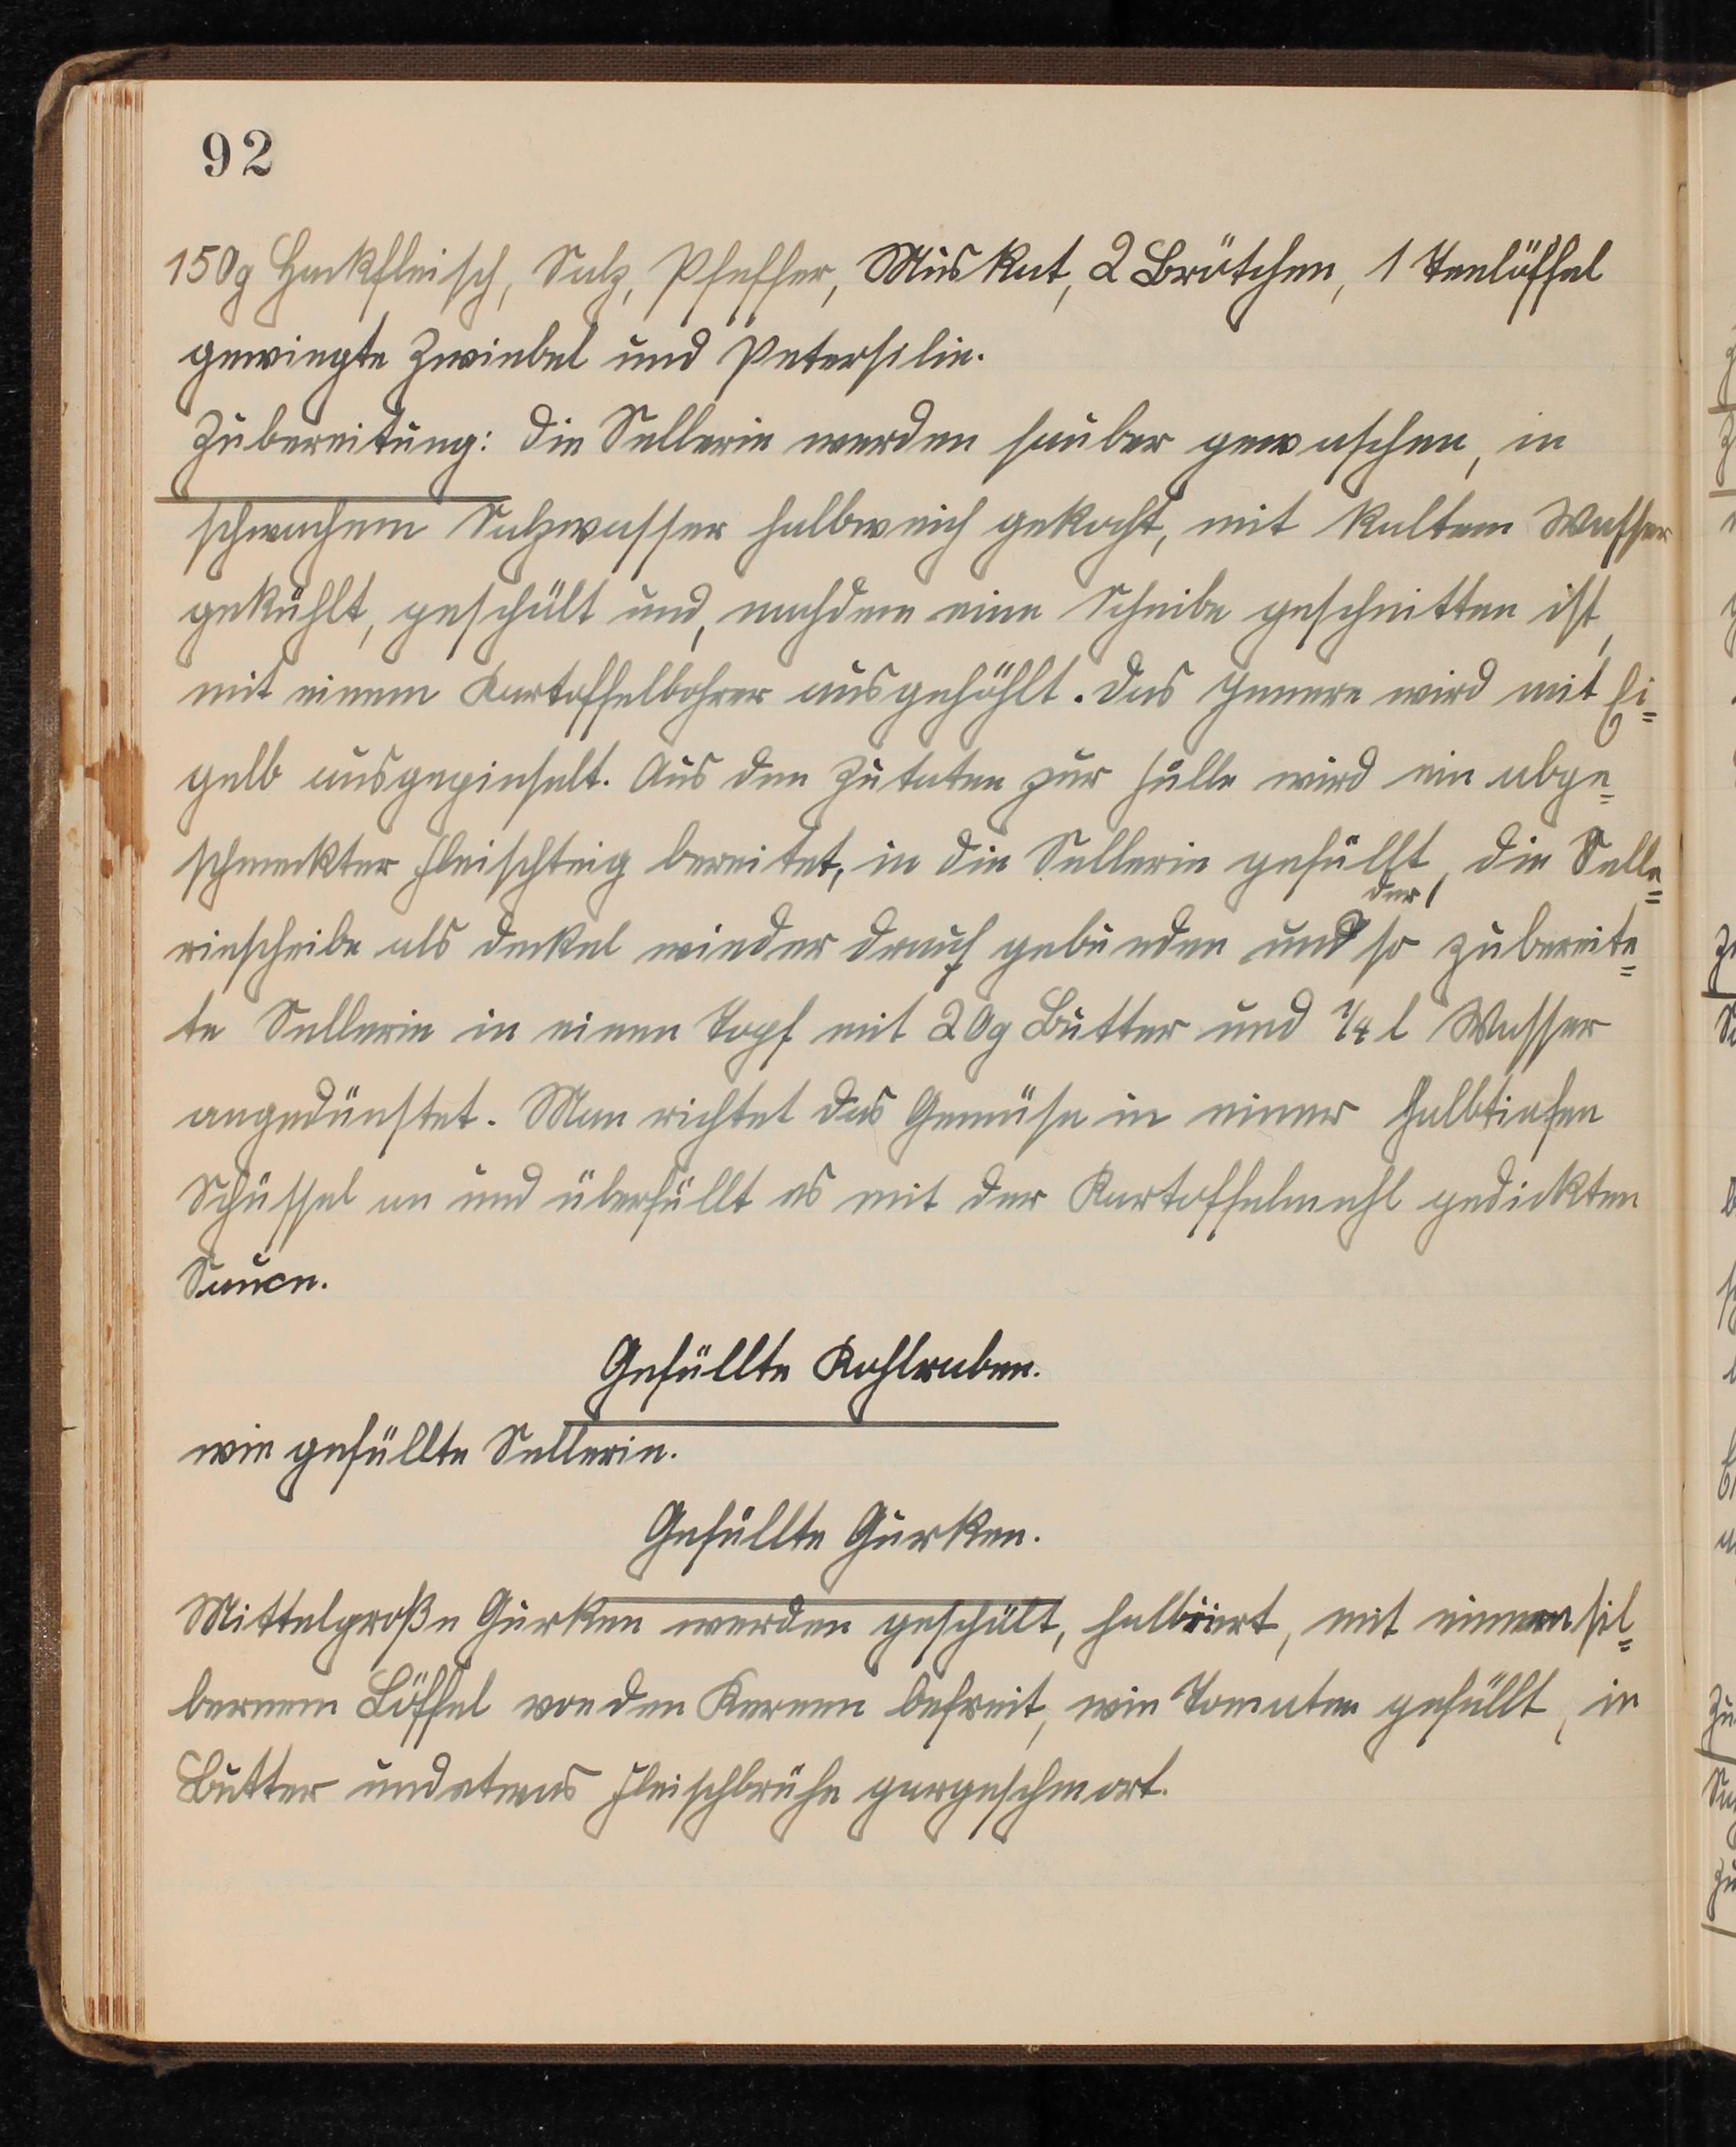 92
150g Hackfleisch, Salz, Pfeffer, Muskat, 2 Brötchen, 1 Teelöffel
gewiegte Zwiebel und Petersilie.
Zubereitung: Die Sellerie werden sauber gewaschen, in
schwachem Salzwasser halbweich gekocht, mit kaltem Wasser
gekühlt, geschält und, nachdem eine Scheibe geschnitten ist,
mit einem Kartoffelbohrer ausgehöhlt. Das Innere wird mit Ei=
gelb ausgepinselt. Aus den Zutaten zur Fülle wird ein abge=
schmeckter Fleischteig bereitet, in die Sellerie gefüllt, die Selle=
der
riescheibe als Deckel wieder drauf gebunden und so zubereite=
te Sellerie in einen Topf mit 20g Butter und ¼ l Wasser
angedünstet. Man richtet das Gemüse in einer halbtiefen
Schüssel an und überfüllt es mit der Kartoffelmehl gedickten
Sauce.
Gefüllte Kohlraben.
wie gefüllte Sellerie.
Gefüllte Gurken.
Mittelgroße Gurken werden geschält, halbiert, mit einem sil=
bernem Löffel von den Kernen befreit, wie Tomaten gefüllt, in
Butter und etwas Fleischbrühe gargeschmort.